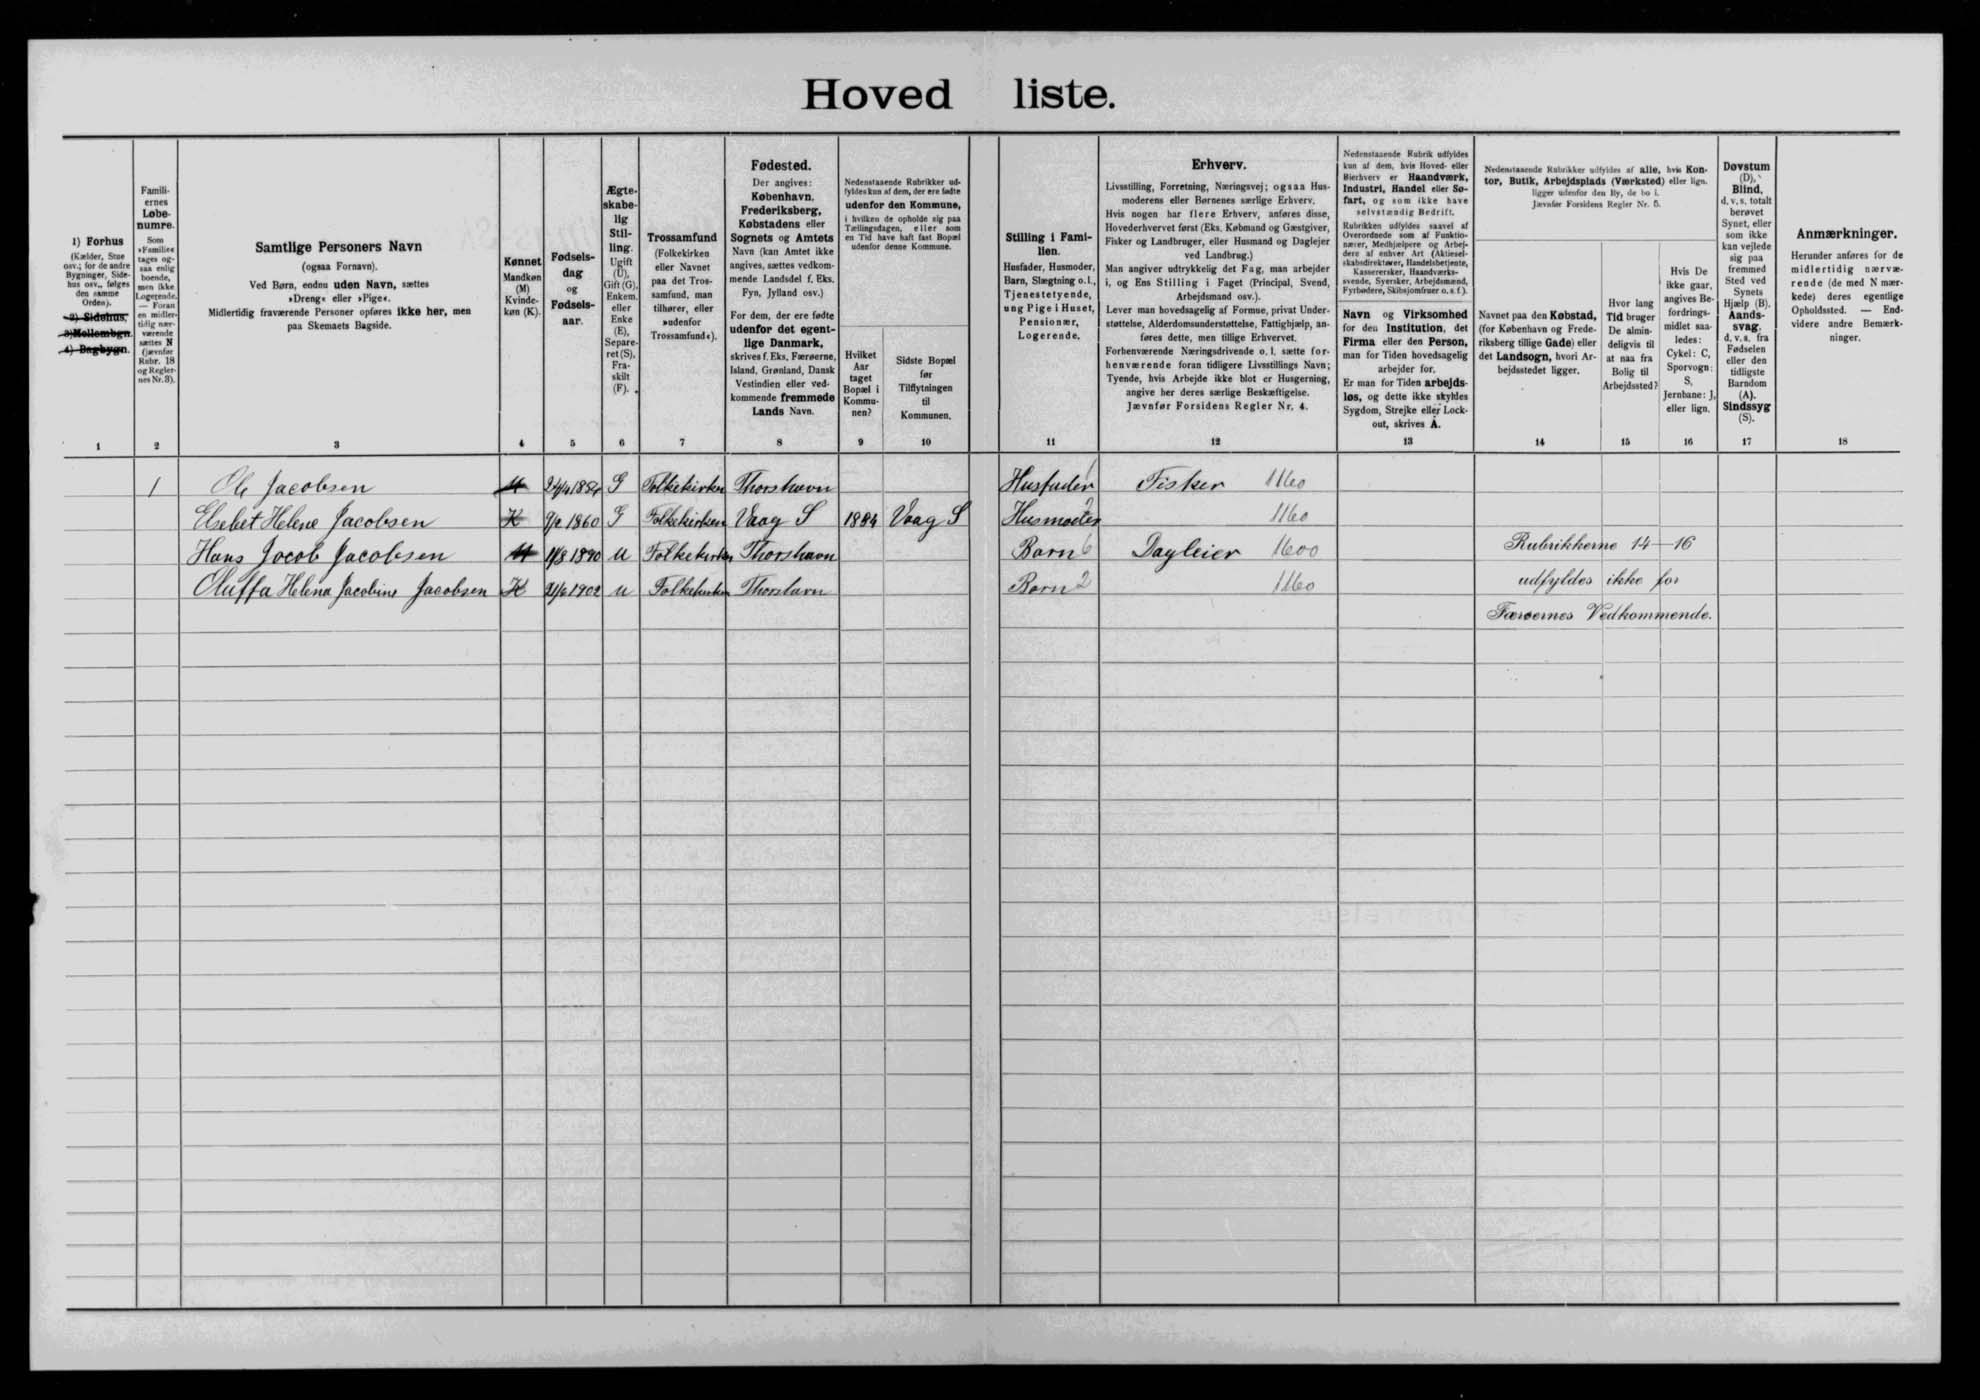 Hovedliste.
1) Forhus
(Kælder, Stue
osv.; for de andre
Bygninger, Side-
hus osv., følges
den samme
Orden).
2) Sidehus,
3) Mellembgn.
4) Bagbygn.
1
Famili-
ernes
Løbe-
numre.
Som
»Familie«
tages og-
saa enlig
boende,
men ikke
Logerende.
— Foran
en midler-
tidig nær-
værende
sættes N
(jævnfør
Rubr. 18
og Regler-
nes Nr. 3).
2
Samtlige Personers Navn
(ogsaa Fornavn).
Ved Børn, endnu uden Navn, sættes
»Dreng« eller »Pige«.
Midlertidig fraværende Personer opføres ikke her, men
paa Skemaets Bagside.
3
Kønnet
Mandkøn
(M)
Kvinde-
køn (K).
4
Fødsels-
dag
og
Fødsels-
aar.
5
Ægte-
skabe-
lig
Stil-
ling.
Ugift
(U),
Gift (G),
Enkem.
eller
Enke
(E),
Separe-
ret (S),
Fra-
skilt
(F).
6
Trossamfund
(Folkekirken
eller Navnet
paa det Tros-
samfund, man
tilhører, eller
»udenfor
Trossamfund«).
7
Fødested.
Der angives:
København,
Frederiksberg,
Købstadens eller
Sognets og Amtets
Navn (kan Amtet ikke
angives, sættes vedkom-
mende Landsdel f. Eks.
Fyn, Jylland osv.)
For dem, der ere fødte
udenfor det egent-
lige Danmark,
skrives f. Eks. Færøerne,
Island, Grønland, Dansk
Vestindien eller ved-
kommende fremmede
Lands Navn.
8
Nedenstaaende Rubrikker ud-
fyldes kun af dem, der ere fødte
udenfor den Kommune,
i hvilken de opholde sig paa
Tællingsdagen, eller som
en Tid have haft fast Bopæl
udenfor denne Kommune.
Hvilket
Aar
taget
Bopæl i
Kommu-
nen?
9
Sidste Bopæl
før
Tilflytningen
til
Kommunen.
10
Stilling i Fami-
lien.
Husfader, Husmoder,
Barn, Slægtning o. l.,
Tjenestetyende,
ung Pige i Huset,
Pensionær,
Logerende.
11
Erhverv.
Livsstilling, Forretning, Næringsvej; ogsaa Hus-
moderens eller Børnenes særlige Erhverv.
Hvis nogen har flere Erhverv, anføres disse,
Hovederhvervet først (Eks. Købmand og Gæstgiver,
Fisker og Landbruger, eller Husmand og Daglejer
ved Landbrug.)
Man angiver udtrykkelig det Fag, man arbejder
i, og Ens Stilling i Faget (Principal, Svend,
Arbejdsmand osv.).
Lever man hovedsagelig af Formue, privat Under-
støttelse, Alderdomsunderstøttelse, Fattighjælp, an-
føres dette, men tillige Erhvervet.
Forhenværende Næringsdrivende o. l. sætte for-
henværende foran tidligere Livsstillings Navn;
Tyende, hvis Arbejde ikke blot er Husgerning,
angive her deres særlige Beskæftigelse.
Jævnfør Forsidens Regler Nr. 4.
12
Nedenstaaende Rubrik udfyldes
kun af dem, hvis Hoved- eller
Bierhverv er Haandværk,
Industri, Handel eller Sø-
fart, og som ikke have
selvstændig Bedrift.
Rubrikken udfyldes saavel af
Overordnede som af Funktio-
nærer, Medhjælpere og Arbej-
dere af enhver Art (Aktiesel-
skabsdirektører, Handelsbetjente,
Kassererske, Haandværks-
svende, Syersker, Arbejdsmænd,
Fyrbødere, Skibsjomfruer o. s. f.).
Navn og Virksomhed
for den Institution, det
Firma eller den Person,
man for Tiden hovedsagelig
arbejder for.
Er man for Tiden arbejds-
løs, og dette ikke skyldes
Sygdom, Strejke eller Lock-
out, skrives A.
13
Nedenstaaende Rubrikker udfyldes af alle, hvis Kon-
tor, Butik, Arbejdsplads (Værksted) eller lign.
ligger udenfor den By, de bo i.
Jævnfør Forsidens Regler Nr. 5.
Navnet paa den Købstad,
(for København og Frede-
riksberg tillige Gade) eller
det Landsogn, hvori Ar-
bejdsstedet ligger.
14
Hvor lang
Tid bruger
De almin-
deligvis til
at naa fra
Bolig til
Arbejdssted?
15
Hvis De
ikke gaar,
angives Be-
fordrings-
midlet saa-
ledes:
Cykel: C,
Sporvogn:
S,
Jernbane: J,
eller lign.
16
Døvstum
(D),
Blind,
d. v. s. totalt
berøvet
Synet, eller
som ikke
kan vejlede
sig paa
fremmed
Sted ved
Synets
Hjælp (B).
Aands-
svag,
d. v. s. fra
Fødselen
eller den
tidligste
Barndom
(A).
Sindssyg
(S).
17
Anmærkninger.
Herunder anføres for de
midlertidig nærvæ-
rende (de med N mær-
kede) deres egentlige
Opholdssted. — End-
videre andre Bemærk-
ninger.
18
1 Ole Jacobsen M 1854 G Folkekirken Thorshavn Husfader 1 Fisker 1160
Elsebet Helene Jacobsen K 1860 G Folkekirken Vaag S 1884 Vaag S Husmoder 2 1160
Hans Jacob Jacobsen M 11/8 1890 U Folkekirken Thorshavn Barn 6 Dagleier 1600
Oluffa Helena Jacobine Jacobsen K 21/6 1902 U Folkekirken Thorshavn Barn 2 1160
Rubrikkerne 14—16
udfyldes ikke for
Færøernes Vedkommende.